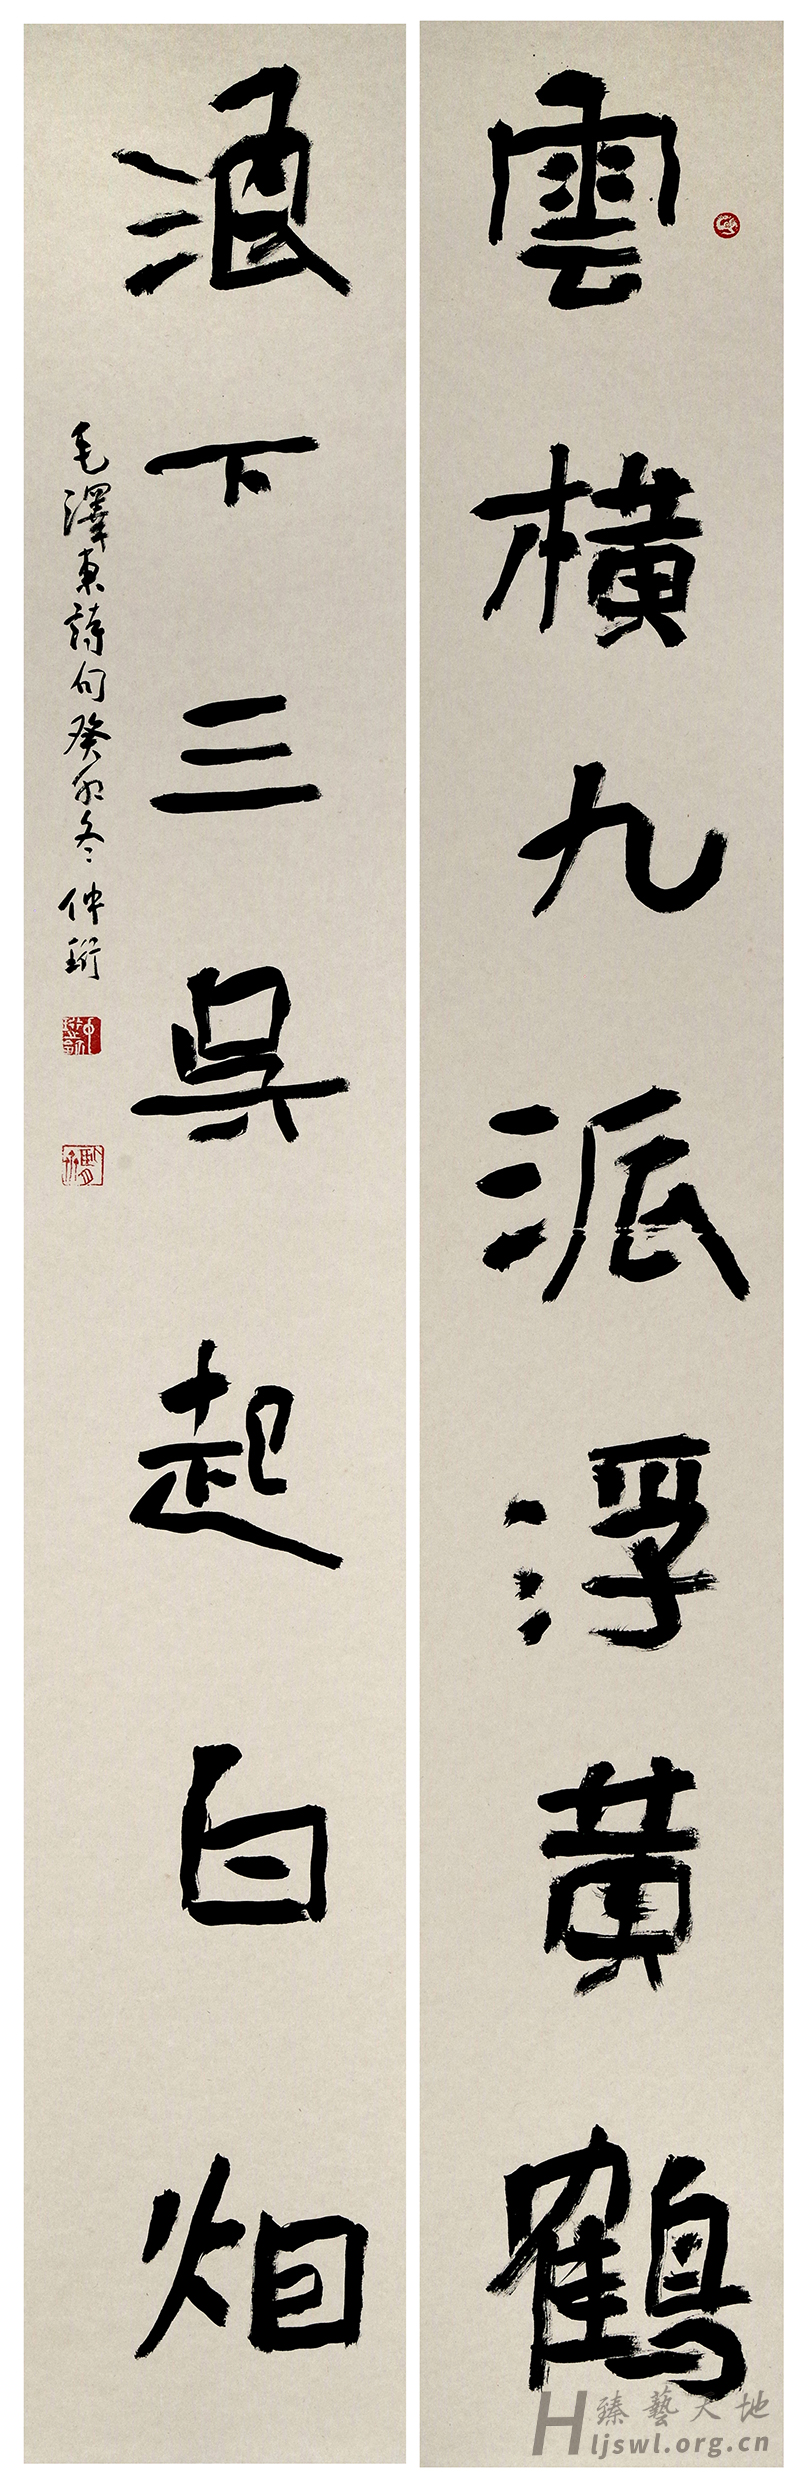 雲橫九派浮黃鶴
酒下三吳起白烟
毛澤東詩句癸卯冬仲珩
臻藝天地
Hljswl.org.cn